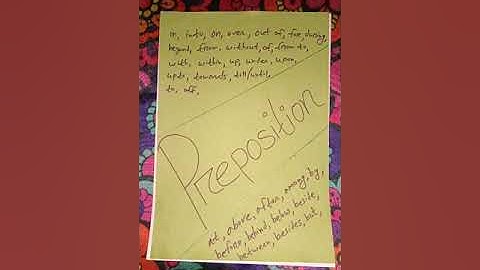 in, into, on, over, out of, for, during,
beyond, from, without, of, from to,
with, within, up, under, upon,
upto, towards, till/until,
to, off,
Preposition
at, above, after, among, by,
before, behind, below, beside,
between, besides, but,